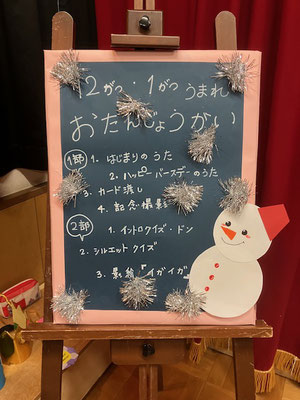 12がつ・1がつ うまれ
おたんじょうかい
1部 1. はじまりのうた
2. ハッピーバースデーのうた
3. カード渡し
4. 記念撮影
2部 1. イントロクイズ・ドン
2. シルエットクイズ
3. 影絵『イガイガ』